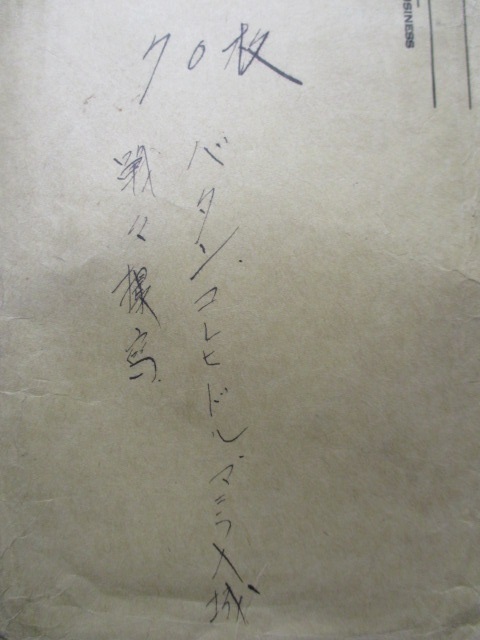 BUSINESS
70枚
バタン.コレヒドル.マニラ入城
戦々撮写